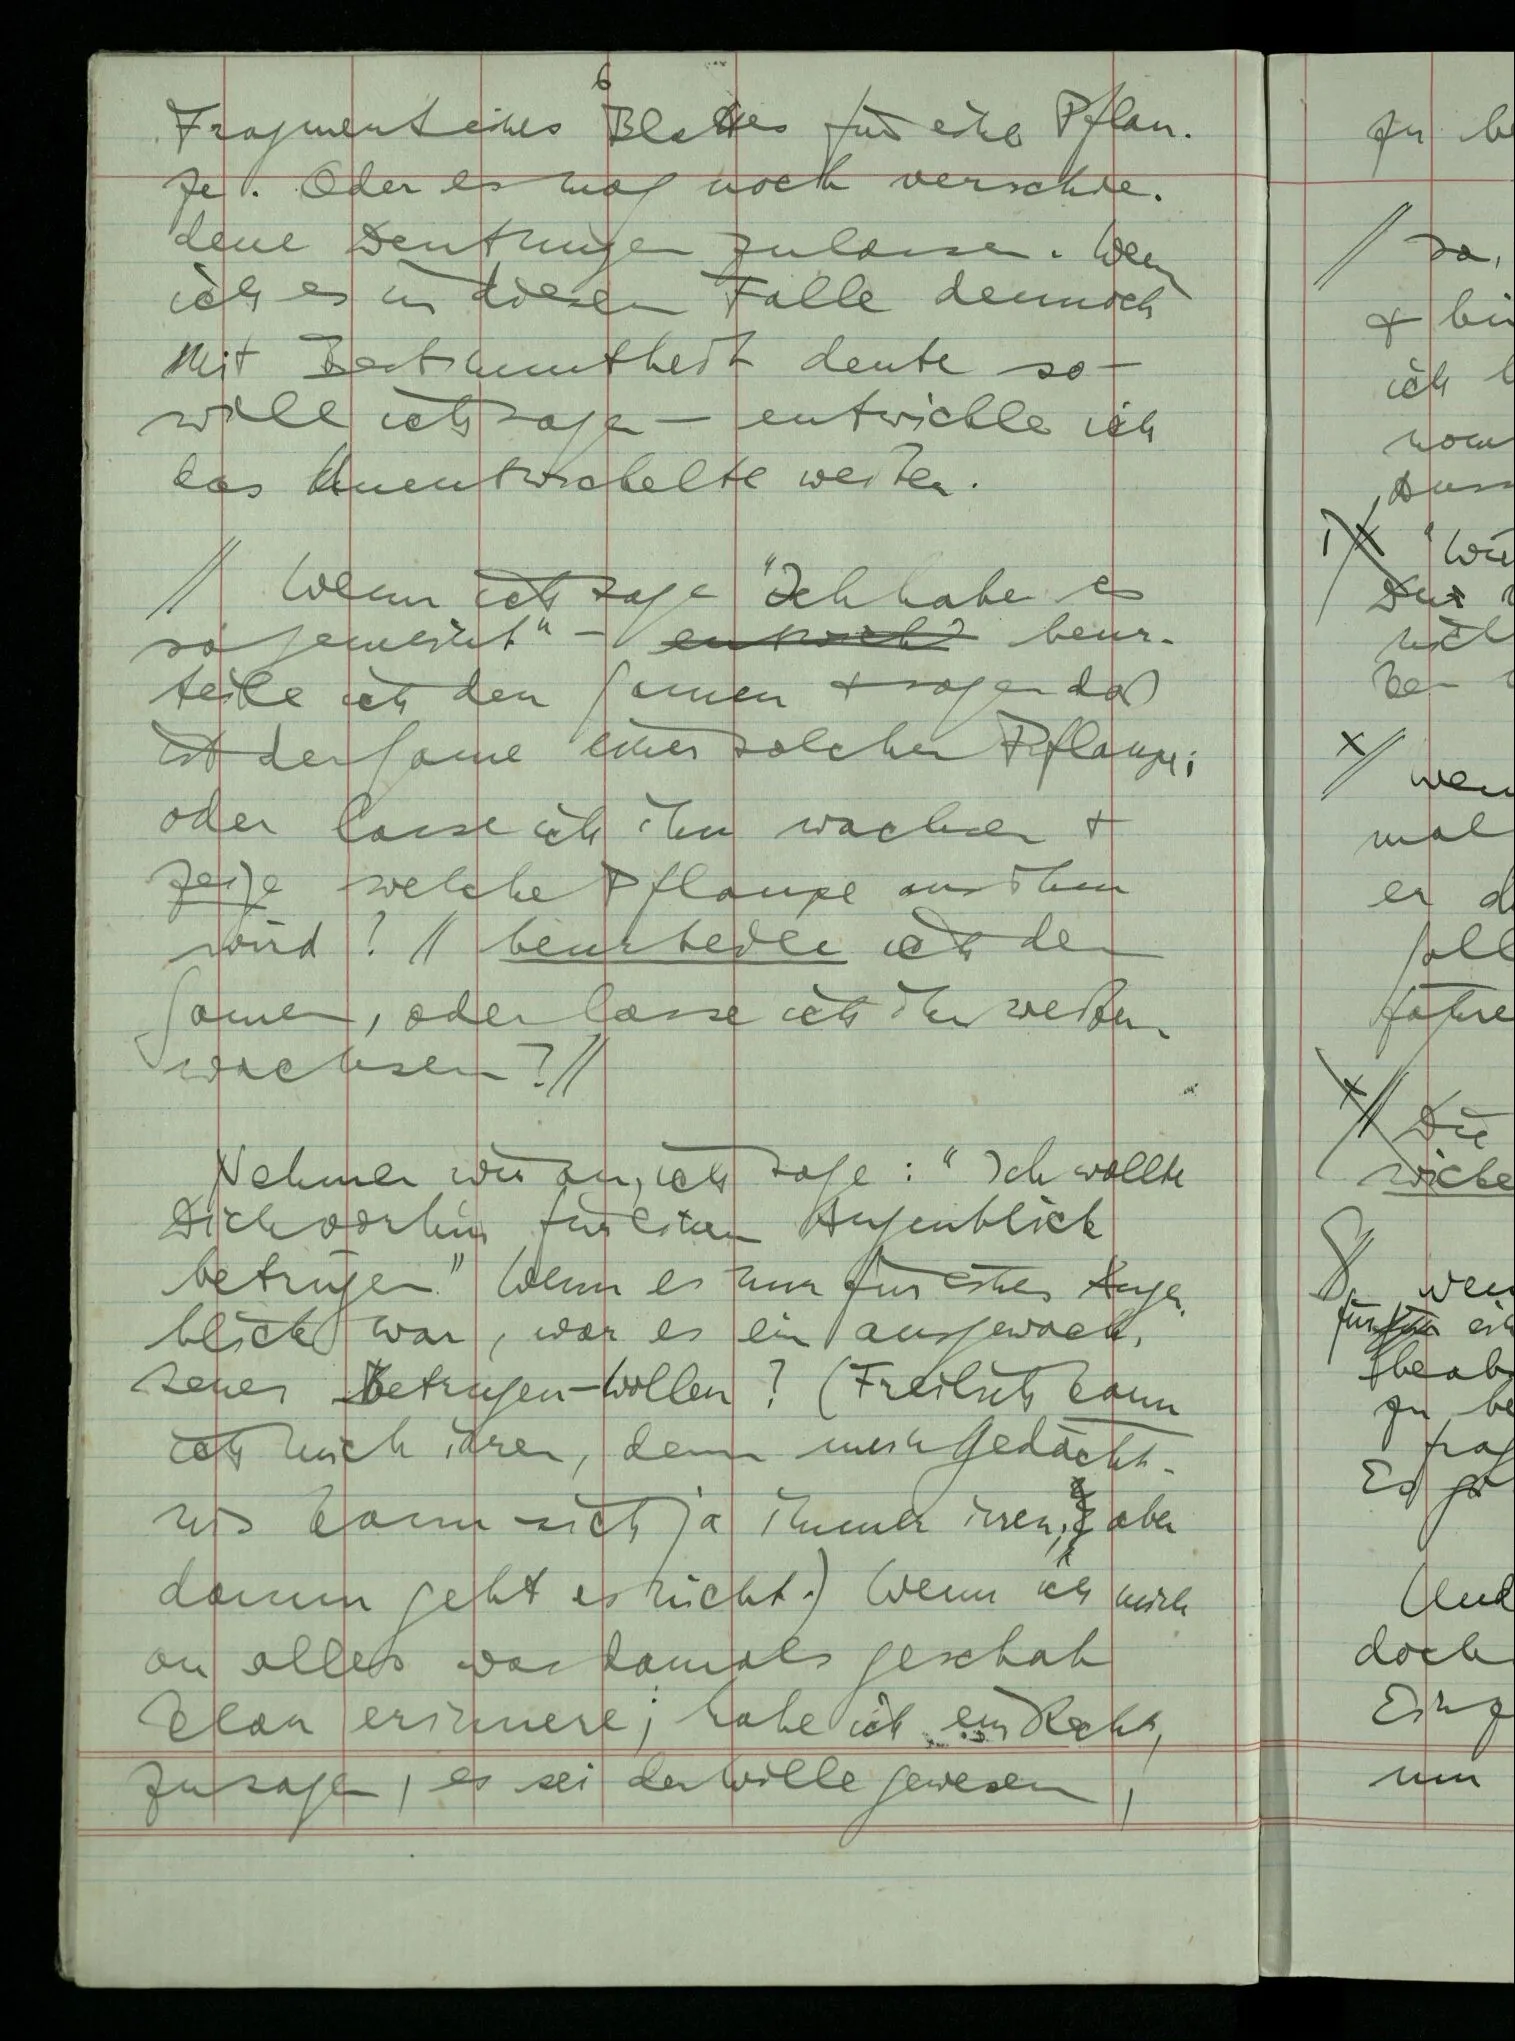 6
Fragment eines Blattes für eine Pflan-
ze. Oder es mag noch verschie-
dene Deutungen zulassen. Wenn
ich es in diesem Falle dennoch
mit Bestimmtheit deute so –
will ich sagen – entwickle ich
das Unentwickelte weiter.
// Wenn ich sage "Ich habe es
so gemeint" – beur-
teile ich den Samen + sage das
ist der Same einer solchen Pflanze;
oder lasse ich ihn wachsen +
zeige welche Pflanze aus ihm
wird? // beurteile ich den
Samen, oder lasse ich ihn weiter
wachsen? //
Nehmen wir an, ich sage: "Ich wollte
Dich vorhin für einen Augenblick
betrügen" Wenn es nur für einen Augen-
blick war, war es ein ausgewach-
senes Betrügen-Wollen? (Freilich kann
ich mich irren, denn mein Gedächt-
nis kann sich ja immer irren; aber
darum geht es nicht.) Wenn ich mich
an alles was damals geschah
klar erinnere; habe ich ein Recht,
zu sagen, es sei der Wille gewesen,
// Ja,
+
ich
x // "Wie
x // wen
mal
er
x // Die
// wen
zu be
Es
Und
doch
um